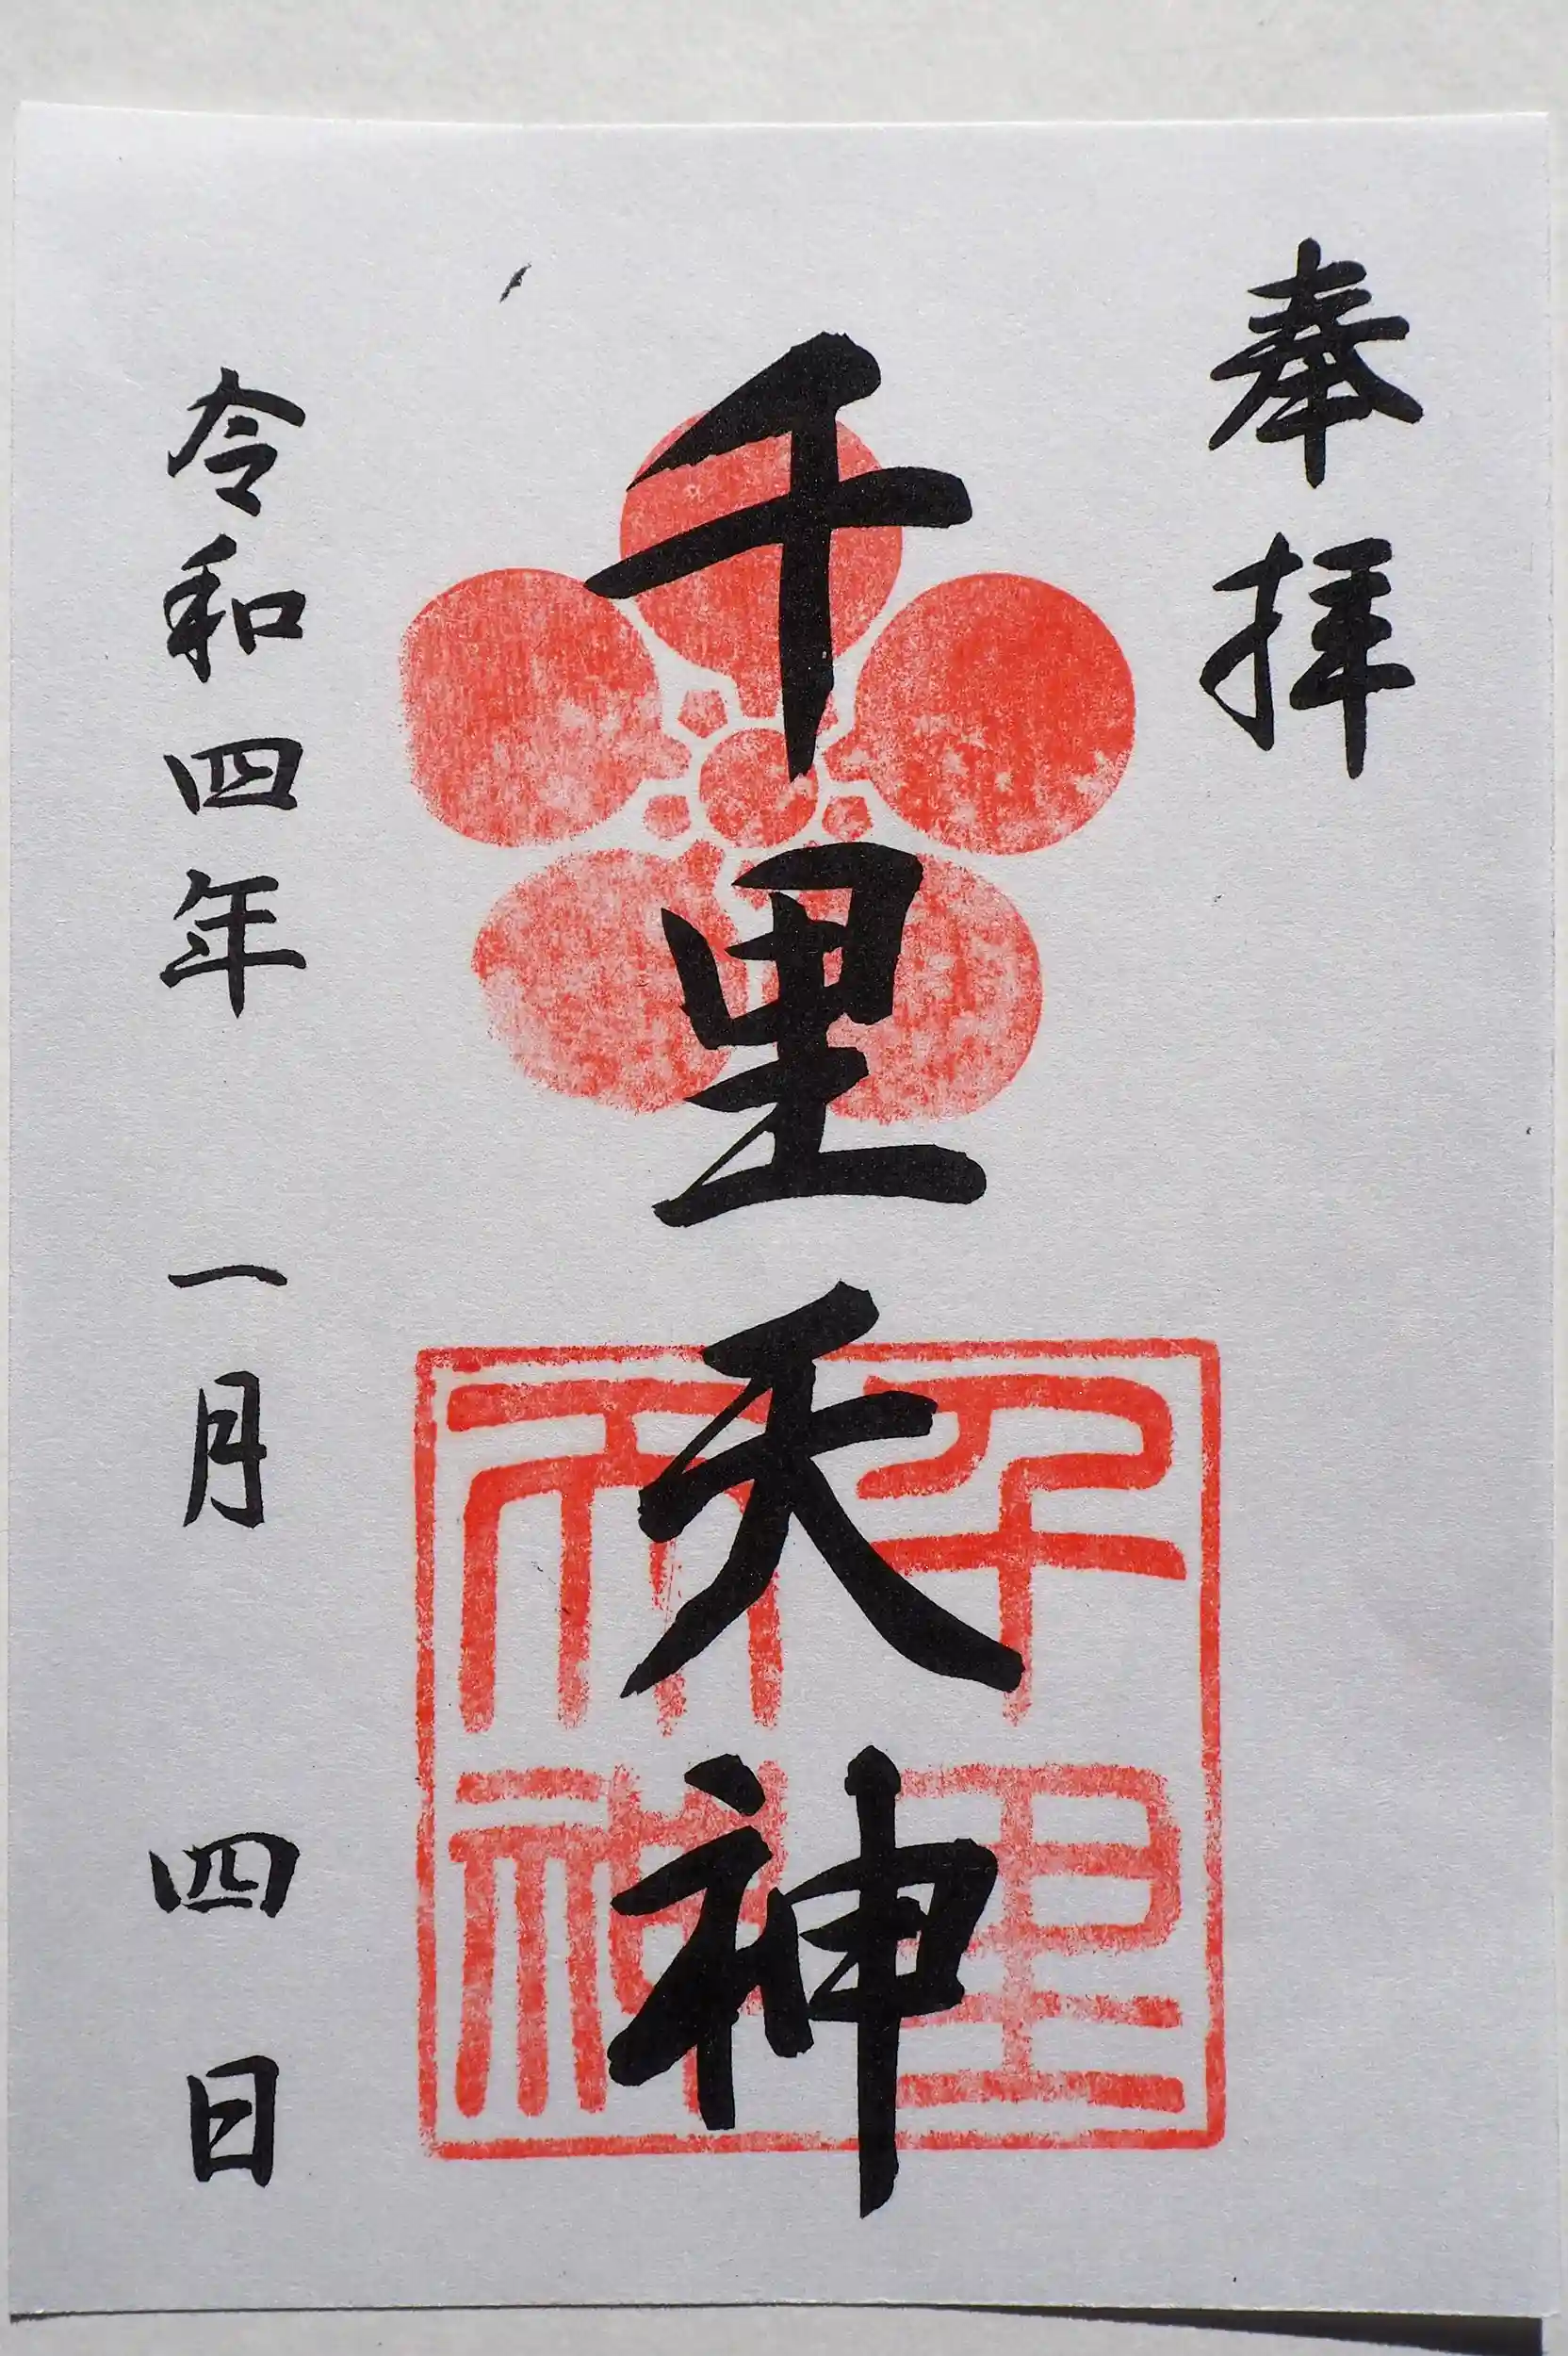 奉拝
千里天神
令和四年一月四日
千里
天神